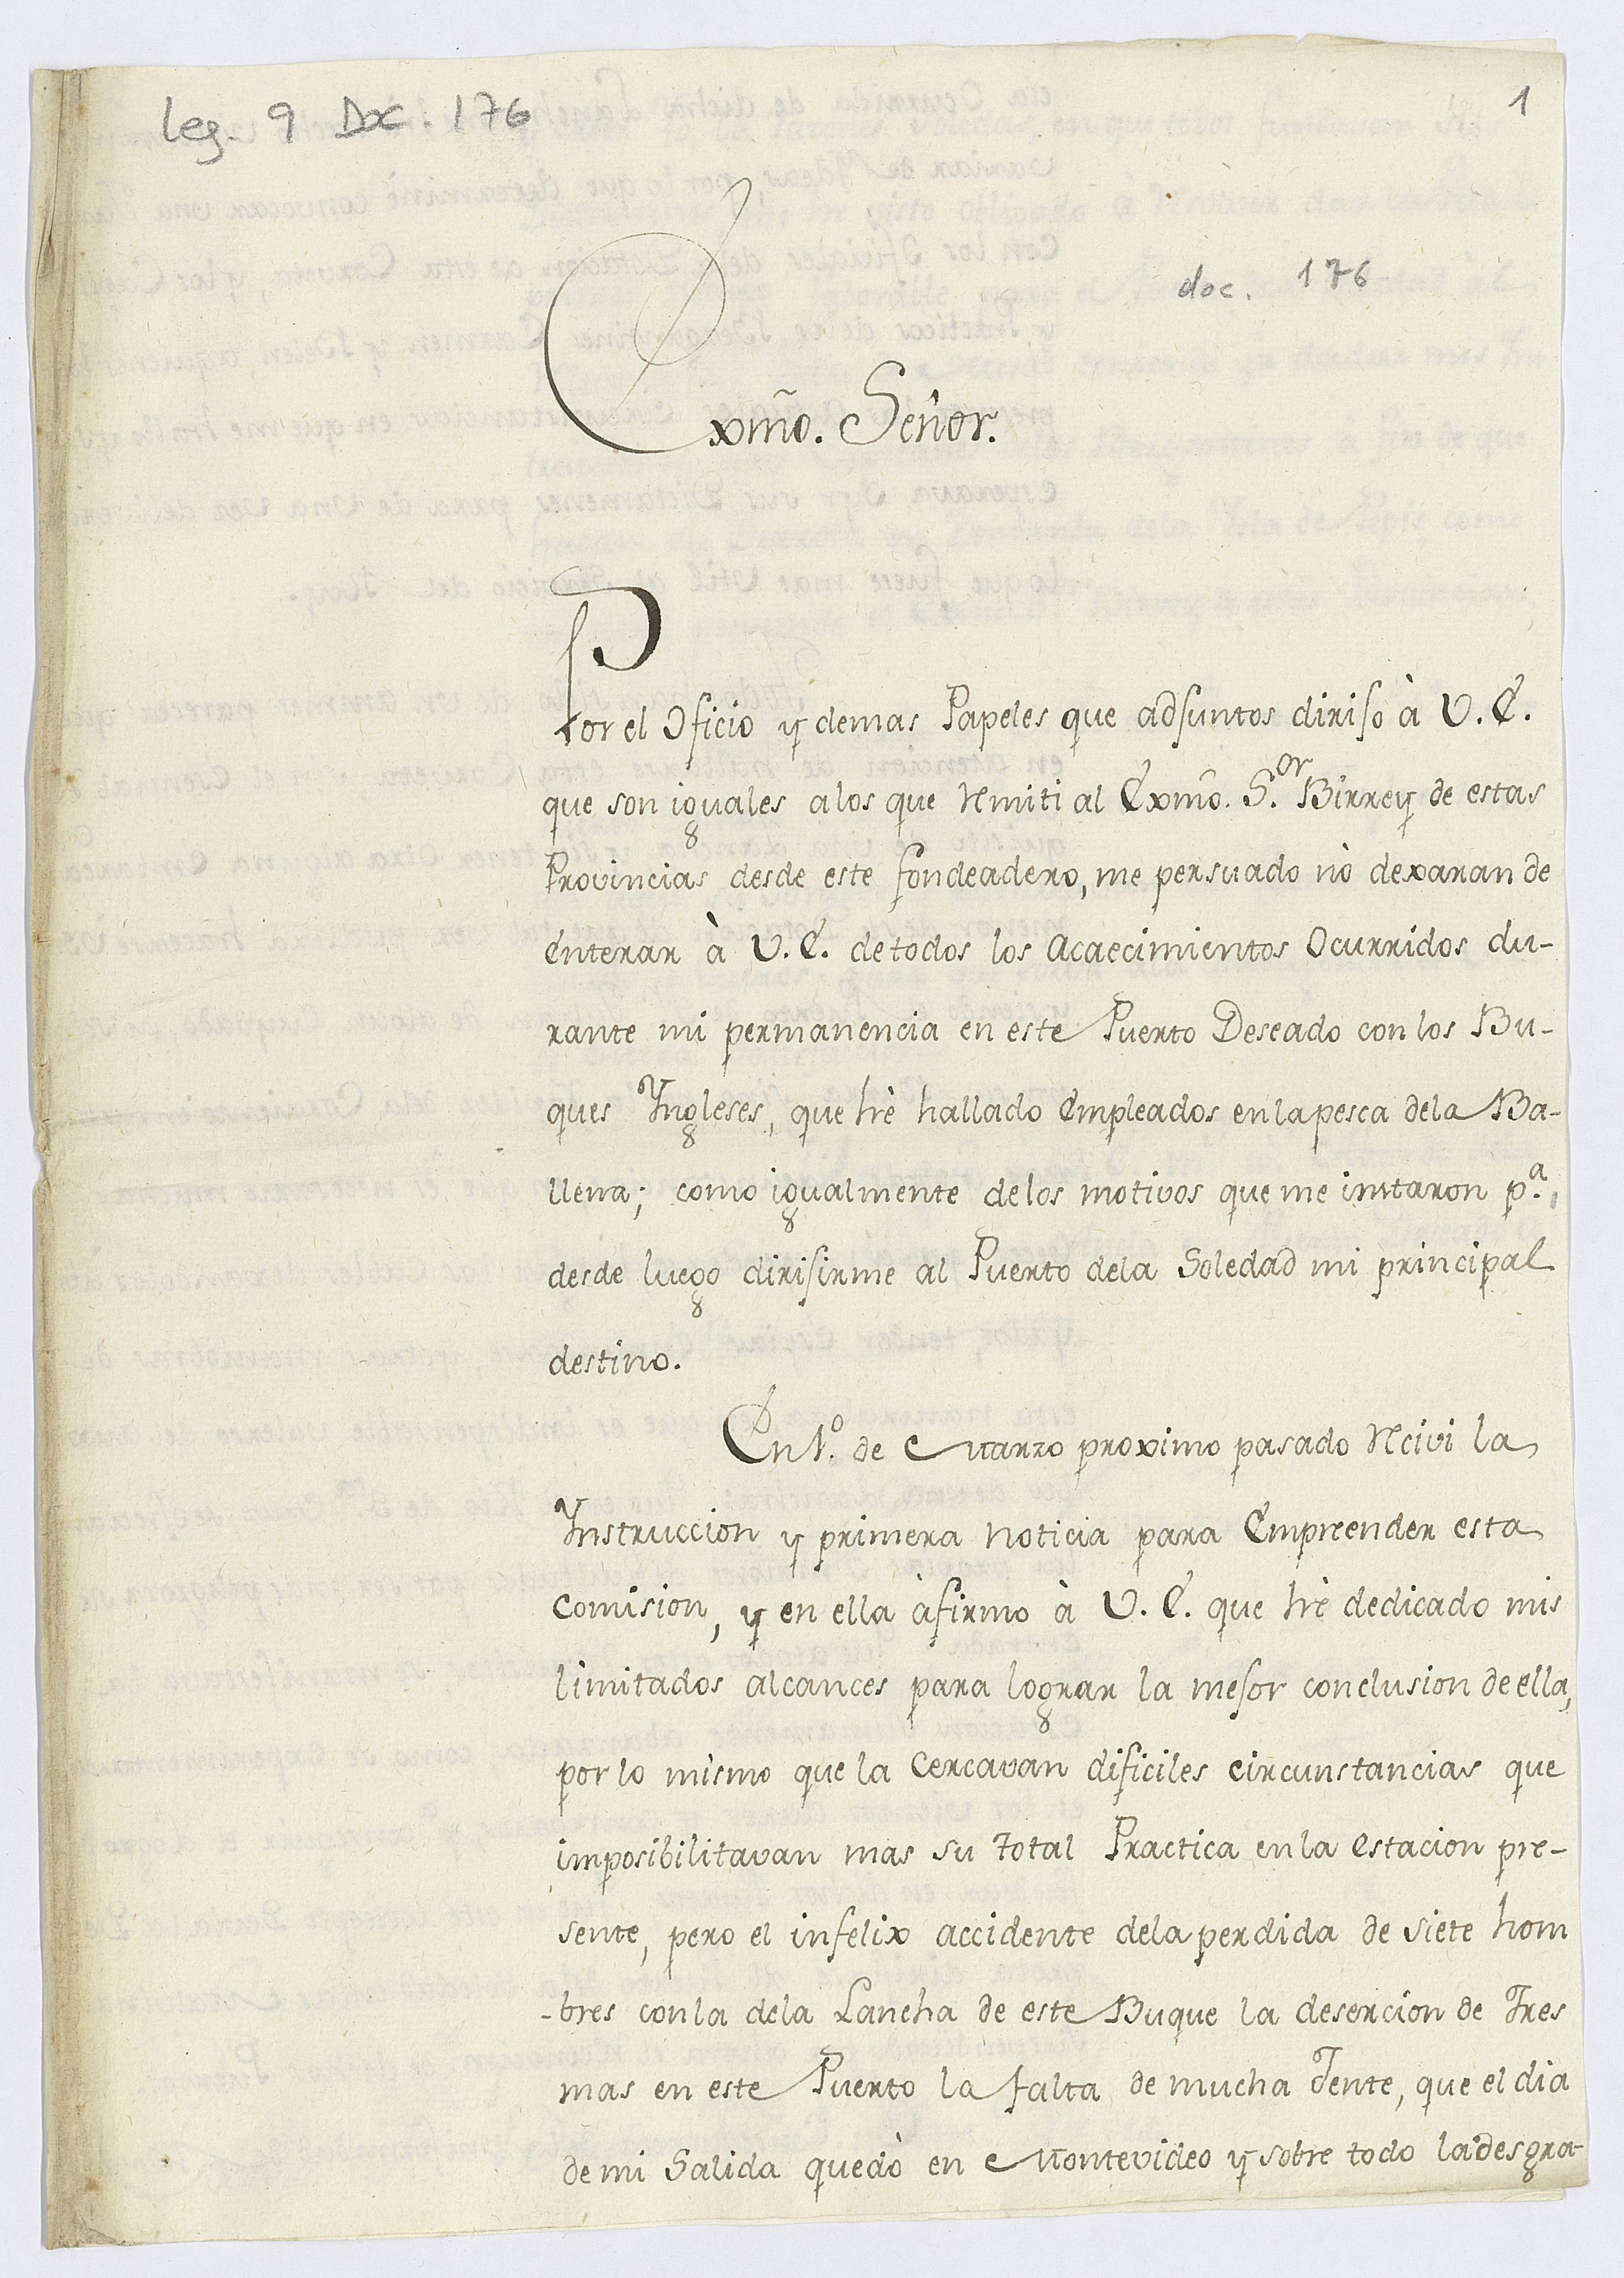 leg. 9 Doc. 176
1
doc. 176
Exmo. Señor.
Por el Oficio y demas Papeles que adjuntos dirijo à V.E.
que son iguales alos que Remiti al Exmo. S.or Birrey de estas
Provincias desde este fondeadero, me persuado nò dexaran de
enterar à V.E. detodos los acaecimientos Ocurridos du-
rante mi permanencia en este Puerto Deseado con los Bu-
ques Yngleses, que hè hallado Empleados enlapesca dela Ba-
llena; como igualmente delos motivos que me instaron p.a
desde luego dirijirme al Puerto dela Soledad mi principal
destino.
En 1.o de Marzo proximo pasado Recivi la
Ynstruccion y primera noticia para Emprender esta
Comision, y en ella àfirmo à V.E. que hè dedicado mis
limitados alcances para lograr la mejor conclusion de ella,
por lo mismo que la Cercavan dificiles circunstancias que
imposibilitavan mas su total Practica enla estacion pre-
sente, pero el infelix accidente dela perdida de siete hom
-bres conla dela Lancha de este Buque la desercion de Tres
mas en este Puerto la falta de mucha Jente, que el dia
de mi Salida quedò en Montevideo y sobre todo la desgra-